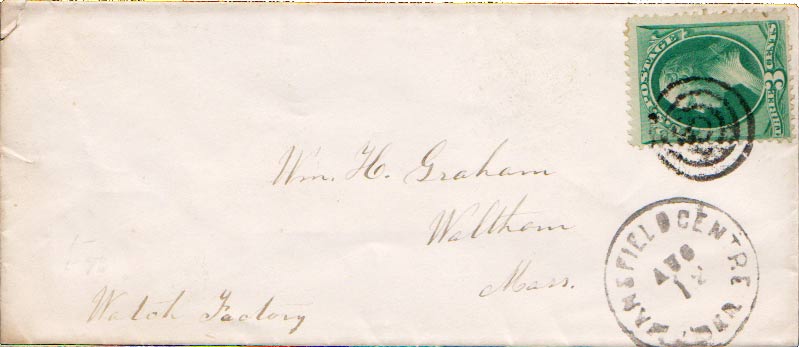 POSTAGE
3
CENTS
Wm. H. Graham
Waltham
Mass.
Watch Factory
MANSFIELD CENTRE
AUG
12